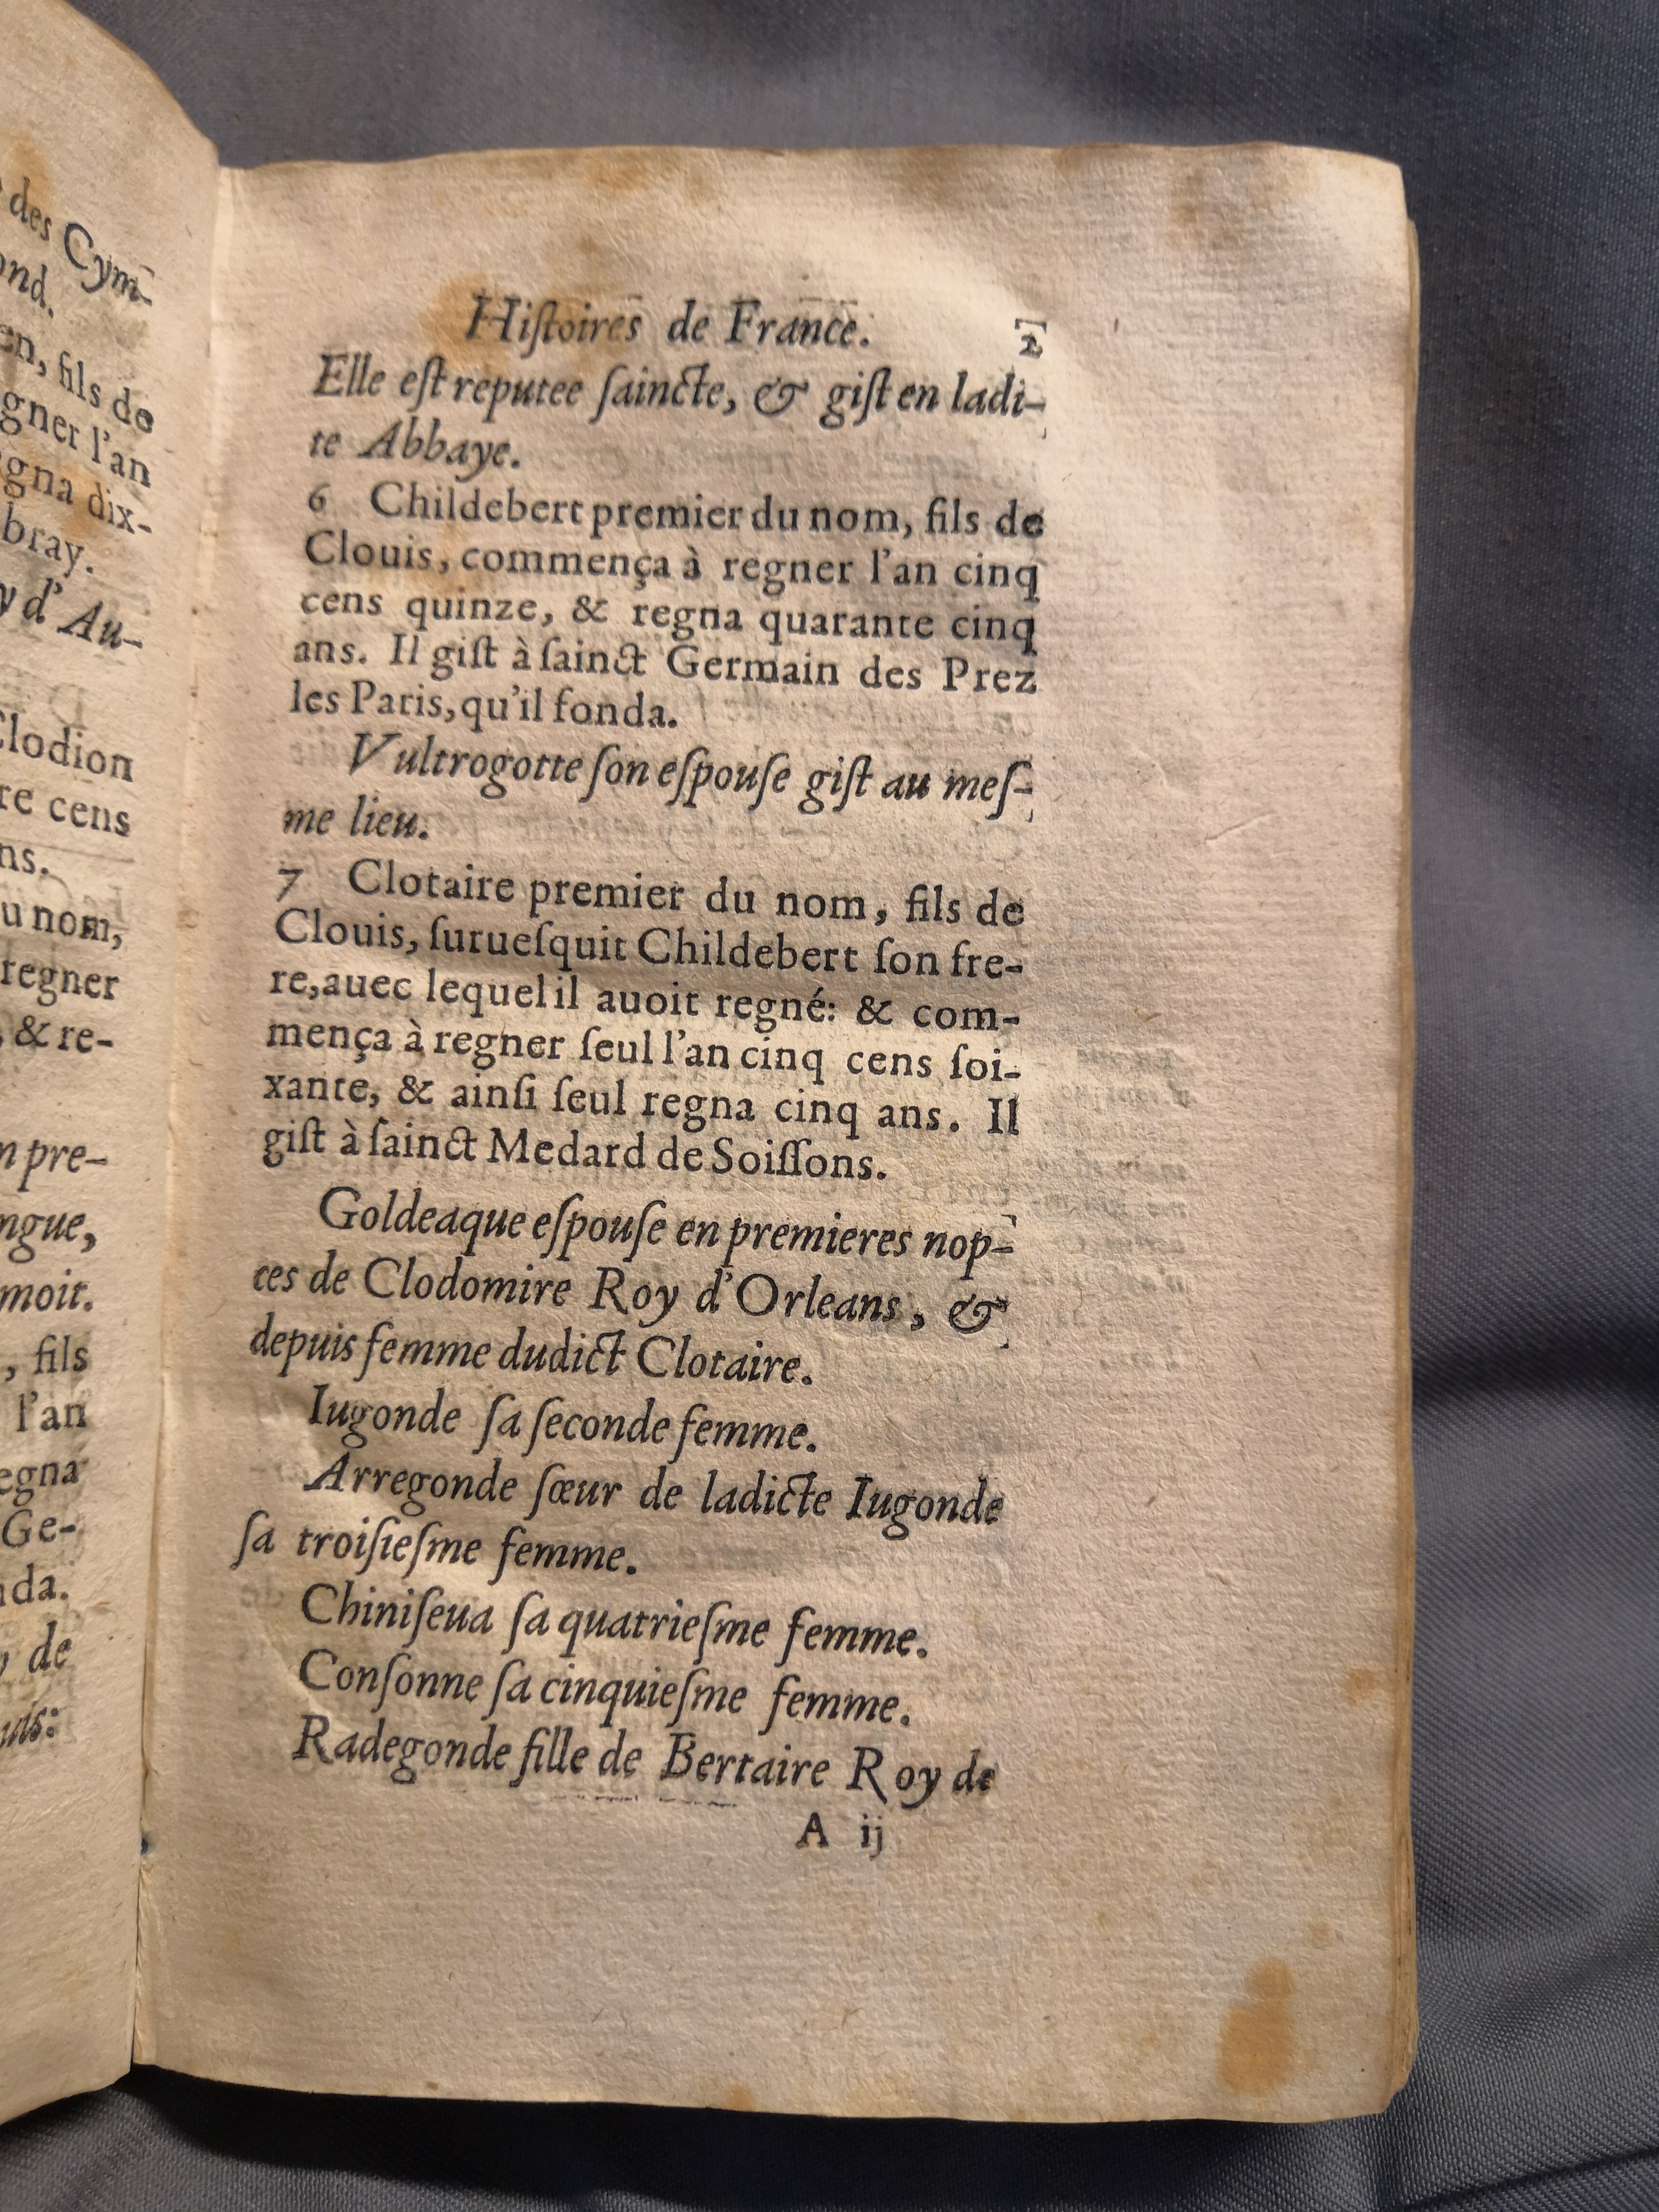 des Cym-
ond.
en, fils de
gner l'an
gna dix-
bray.
y d'Au-
Clodion
re cens
ns.
u nom,
regner
, & re-
n pre-
ngue,
moit.
, fils
l'an
egna
Ge-
nda.
de
uis:
Hiſtoires de France. 2
Elle eſt reputee ſaincte, & giſt en ladi-
te Abbaye.
6 Childebert premier du nom, fils de
Clouis, commença à regner l'an cinq
cens quinze, & regna quarante cinq
ans. Il giſt à ſainct Germain des Prez
les Paris, qu'il fonda.
Vultrogotte ſon eſpouſe giſt au meſ-
me lieu.
7 Clotaire premier du nom, fils de
Clouis, ſurueſquit Childebert ſon fre-
re, auec lequel il auoit regné: & com-
mença à regner ſeul l'an cinq cens ſoi-
xante, & ainſi ſeul regna cinq ans. Il
giſt à ſainct Medard de Soiſſons.
Goldeaque eſpouſe en premieres nop-
ces de Clodomire Roy d'Orleans, &
depuis femme dudict Clotaire.
Iugonde ſa ſeconde femme.
Arregonde ſœur de ladicte Iugonde
ſa troiſieſme femme.
Chiniſeua ſa quatrieſme femme.
Conſonne ſa cinquieſme femme.
Radegonde fille de Bertaire Roy de
A ij